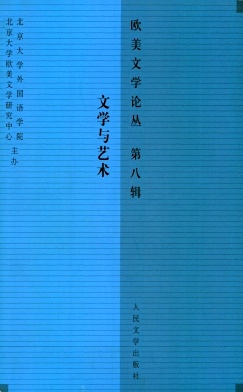 欧美文学论丛 第八辑
文学与艺术
北京大学外国语学院
北京大学欧美文学研究中心
主办
人民文学出版社